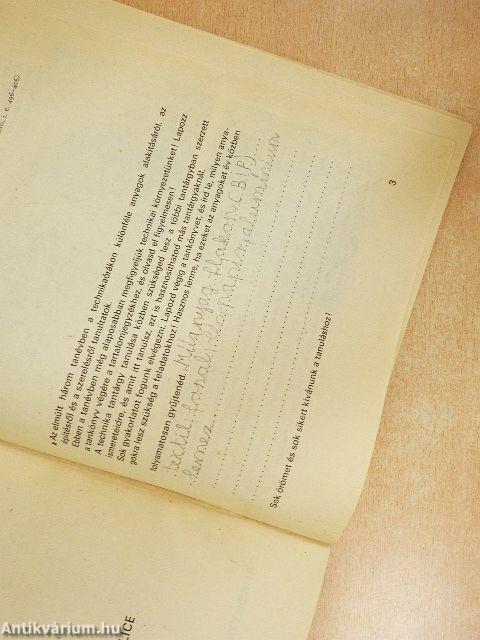 , i. e. 496–406).
Az elmúlt három tanévben a technikaórákon különféle anyagok alakításáról, az
építésről és a szerelésről tanultatok.
Ebben a tanévben még alaposabban megfigyeljük technikai környezetünket! Lapozz
a tankönyv végére a tartalomjegyzékhez, és olvasd el figyelmesen!
A technika tantárgy tanulása közben szükséged lesz a többi tantárgyban szerzett
ismereteidre, és amit itt tanulsz, azt is hasznosíthatod más tantárgyaknál.
Sok gyakorlatot fogunk elvégezni. Lapozd végig a tankönyvet, és írd le, milyen anya-
gokra lesz szükség a feladatokhoz! Hasznos lenne, ha ezeket az anyagokat év közben
folyamatosan gyűjtenéd. Műanyag flakon
textil, fonal,
lemez
Sok örömet és sok sikert kívánunk a tanuláshoz!
3
LICE
Antikvárium.hu